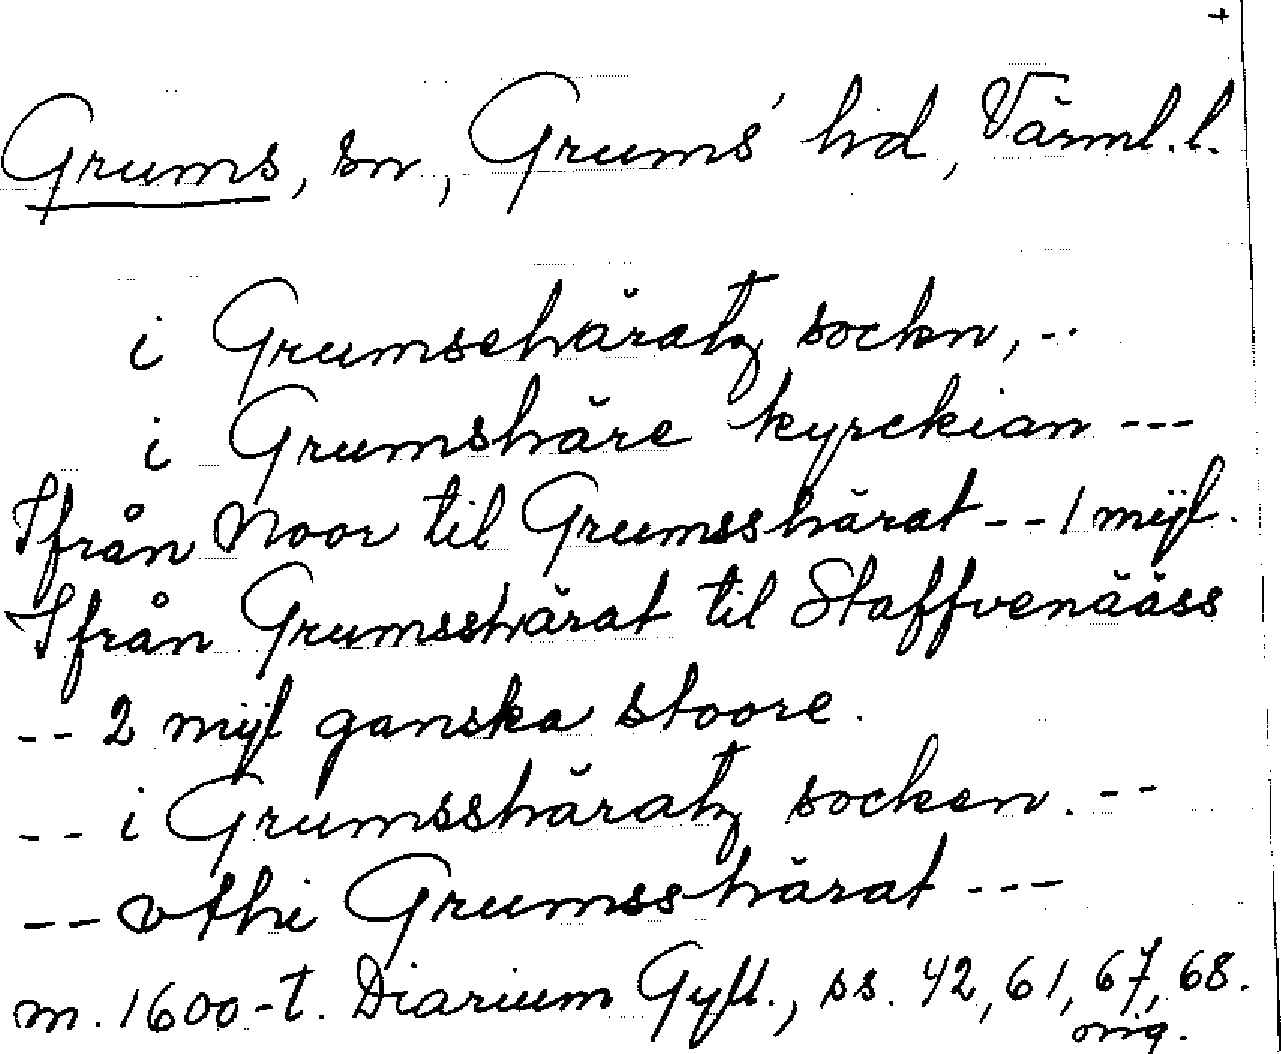 +
Grums, sn, Grums' hd, Värml.l.
i Grumsehäratz sockn, --
i Grumshäre kyrckian ---
Ifrån Noor til Grumsshärat -- 1 mÿl.
Ifrån Grumsshärat til Staffvenääss
-- 2 mÿl ganska stoore.
-- i Grumsshäratz socken. --
-- vthi Grumsshärat ---
m. 1600-t. Diarium Gyll., ss. 42, 61, 67, 68.
orig.